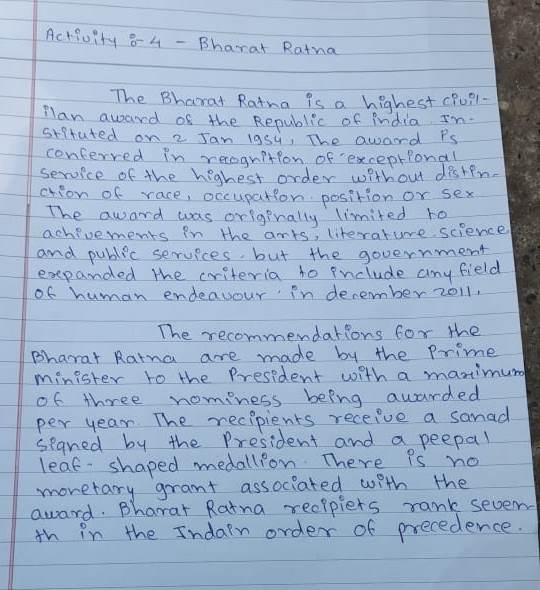 Activity :- 4 - Bharat Ratna
The Bharat Ratna is a highest civil-
ilan award of the Republic of india. In-
stituted on 2 Jan 1954, The award is
conferred in recognition of exceptional
service of the highest order without distin-
ction of race, occupation. position or sex
The award was originally limited to
achivements in the arts, literature. science
and public services. but the government
expanded the criteria to include any field
of human endeavour. in december 2011.
The recommendations for the
Bharat Ratna are made by the Prime
minister to the President with a maximum
of three nominess being awarded
per year. The recipients receive a sanad
signed by the President and a peepal
leaf- shaped medallion. There is no
monetary grant associated with the
award. Bharat Ratna recipiets rank seven-
th in the Indain order of precedence.